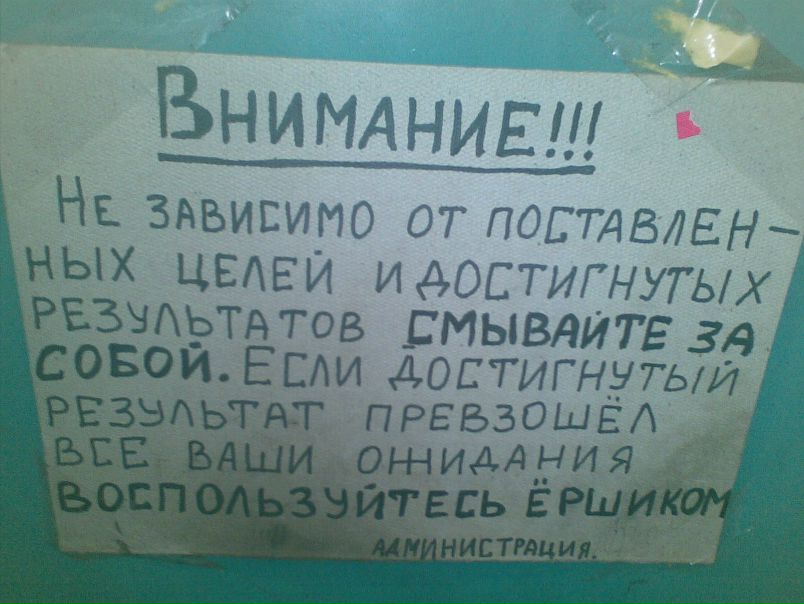 ВНИМАНИЕ!!!
НЕ ЗАВИСИМО ОТ ПОСТАВЛЕН-
НЫХ ЦЕЛЕЙ И ДОСТИГНУТЫХ
РЕЗУЛЬТАТОВ СМЫВАЙТЕ ЗА
СОБОЙ. ЕСЛИ ДОСТИГНУТЫЙ
РЕЗУЛЬТАТ ПРЕВЗОШЁЛ
ВСЕ ВАШИ ОЖИДАНИЯ
ВОСПОЛЬЗУЙТЕСЬ ЁРШИКОМ
АДМИНИСТРАЦИЯ.